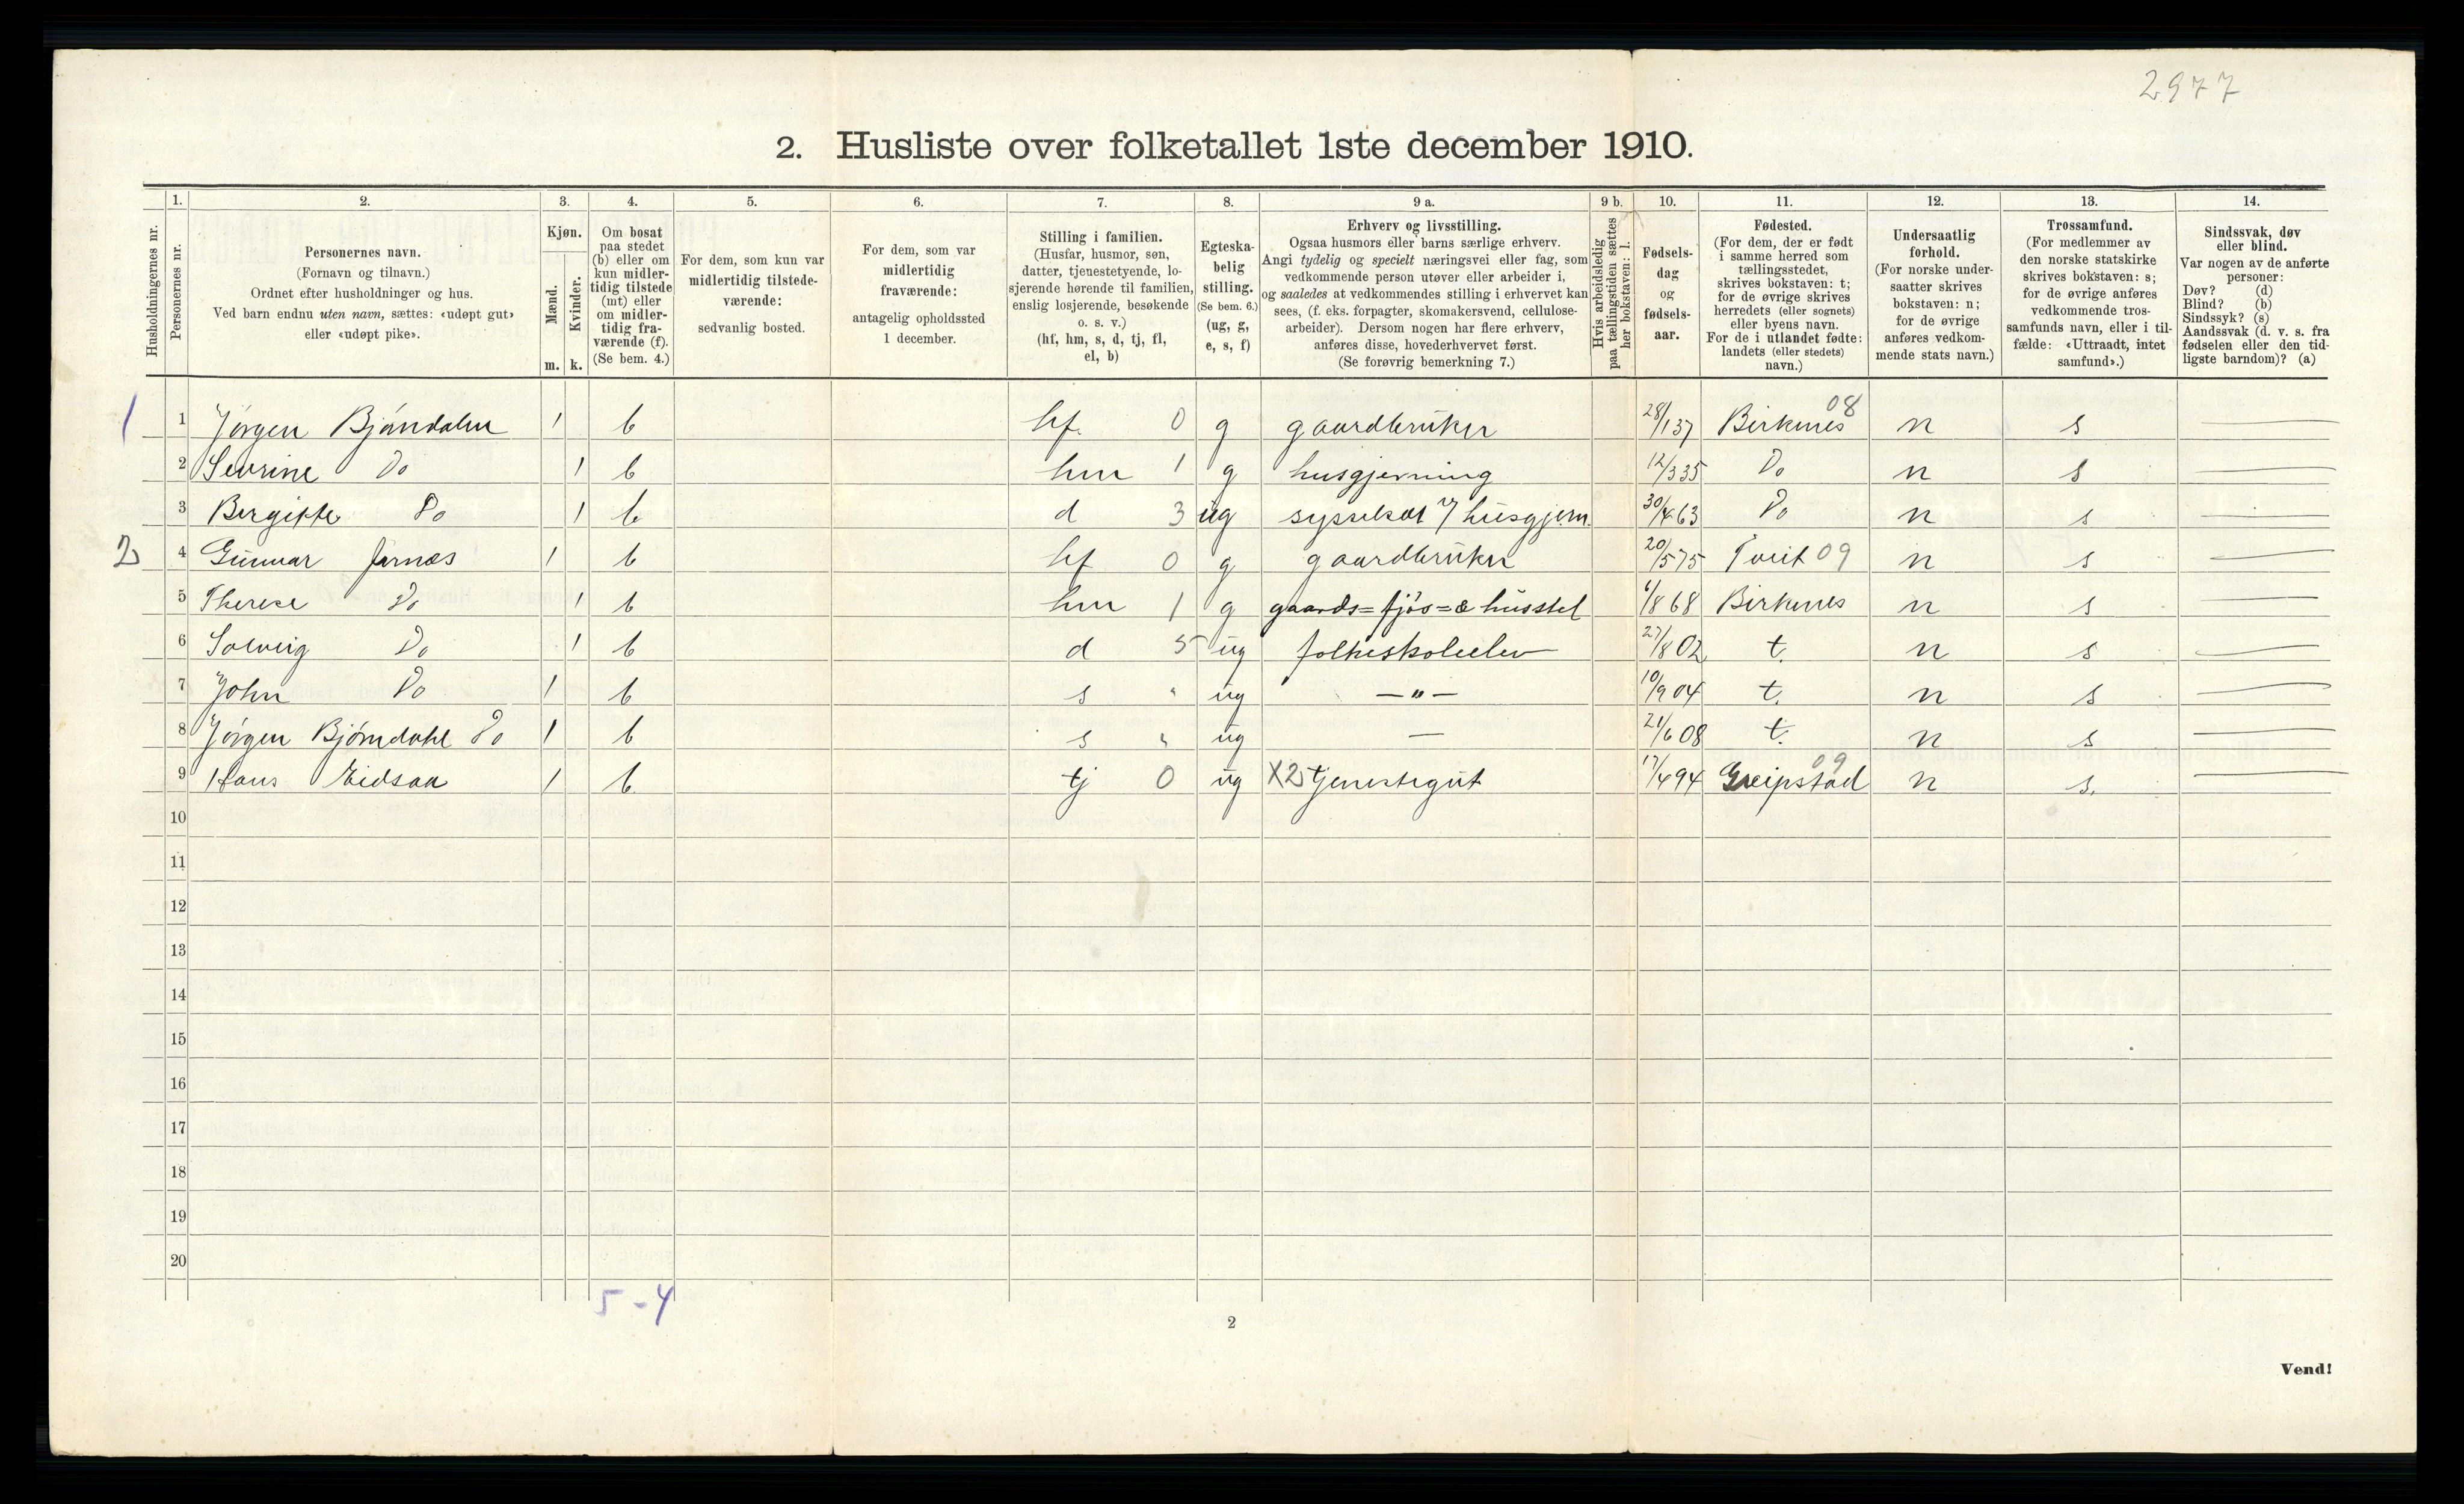 2977
2. Husliste over folketallet 1ste december 1910.
1. 2. 3. 4. 5. 6. 7. 8. 9 a. 9 b. 10. 11. 12. 13. 14.
Husholdningernes nr.
Personernes nr.
Personernes navn.
(Fornavn og tilnavn.)
Ordnet efter husholdninger og hus.
Ved barn endnu uten navn, sættes: «udøpt gut»
eller «udøpt pike».
Kjøn.
Mænd.
Kvinder.
m. k.
Om bosat
paa stedet
(b) eller om
kun midler-
tidig tilstede
(mt) eller
om midler-
tidig fra-
værende (f).
(Se bem. 4.)
For dem, som kun var
midlertidig tilstede-
værende:
sedvanlig bosted.
For dem, som var
midlertidig
fraværende:
antagelig opholdssted
1 december.
Stilling i familien.
(Husfar, husmor, søn,
datter, tjenestetyende, lo-
sjerende hørende til familien,
enslig losjerende, besøkende
o. s. v.)
(hf, hm, s, d, tj, fl,
el, b)
Egteska-
belig
stilling.
(Se bem. 6.)
(ug, g,
e, s, f)
Erhverv og livsstilling.
Ogsaa husmors eller barns særlige erhverv.
Angi tydelig og specielt næringsvei eller fag, som
vedkommende person utøver eller arbeider i,
og saaledes at vedkommendes stilling i erhvervet kan
sees, (f. eks. forpagter, skomakersvend, cellulose-
arbeider). Dersom nogen har flere erhverv,
anføres disse, hovederhvervet først.
(Se forøvrig bemerkning 7.)
Hvis arbeidsledig
paa tællingstiden sættes
her bokstaven: l.
Fødsels-
dag
og
fødsels-
aar.
Fødested.
(For dem, der er født
i samme herred som
tællingsstedet,
skrives bokstaven: t;
for de øvrige skrives
herredets (eller sognets)
eller byens navn.
For de i utlandet fødte:
landets (eller stedets)
navn.)
Undersaatlig
forhold.
(For norske under-
saatter skrives
bokstaven: n;
for de øvrige
anføres vedkom-
mende stats navn.)
Trossamfund.
(For medlemmer av
den norske statskirke
skrives bokstaven: s;
for de øvrige anføres
vedkommende tros-
samfunds navn, eller i til-
fælde: «Uttraadt, intet
samfund».)
Sindssvak, døv
eller blind.
Var nogen av de anførte
personer:
Døv? (d)
Blind? (b)
Sindssyk? (s)
Aandssvak (d. v. s. fra
fødselen eller den tid-
ligste barndom)? (a)
1 1 Jørgen Bjørndalen 1 b hf. 0 g gaardbruker 28/1 37 Birkenes 08 n s —
2 Sevrine Do 1 b hm 1 g husgjerning 12/3 35 Do n s —
3 Bergitte Do 1 b d 3 ug sysselsat v/ husgjern. 30/4 63 Do n s —
2 4 Gunnar Jernæs 1 b hf 0 g gaardbruker 20/5 75 Tveit 09 n s —
5 Therese Do 1 b hm 1 g gaards= fjøs= & husstel 6/8 68 Birkenes n s —
6 Solveig Do 1 b d 5 ug folkeskoleelev 27/8 02 t. n s —
7 John Do 1 b s " ug —"— 10/9 04 t. n s —
8 Jørgen Bjørndahl Do 1 b s " ug — 21/6 08 t. n s —
9 Hans Eidsaa 1 b. tj 0 ug X2 tjenestegut 17/4 94 Greipstad 09 n s. —
10
11
12
13
14
15
16
17
18
19
20
5-4
2
Vend!